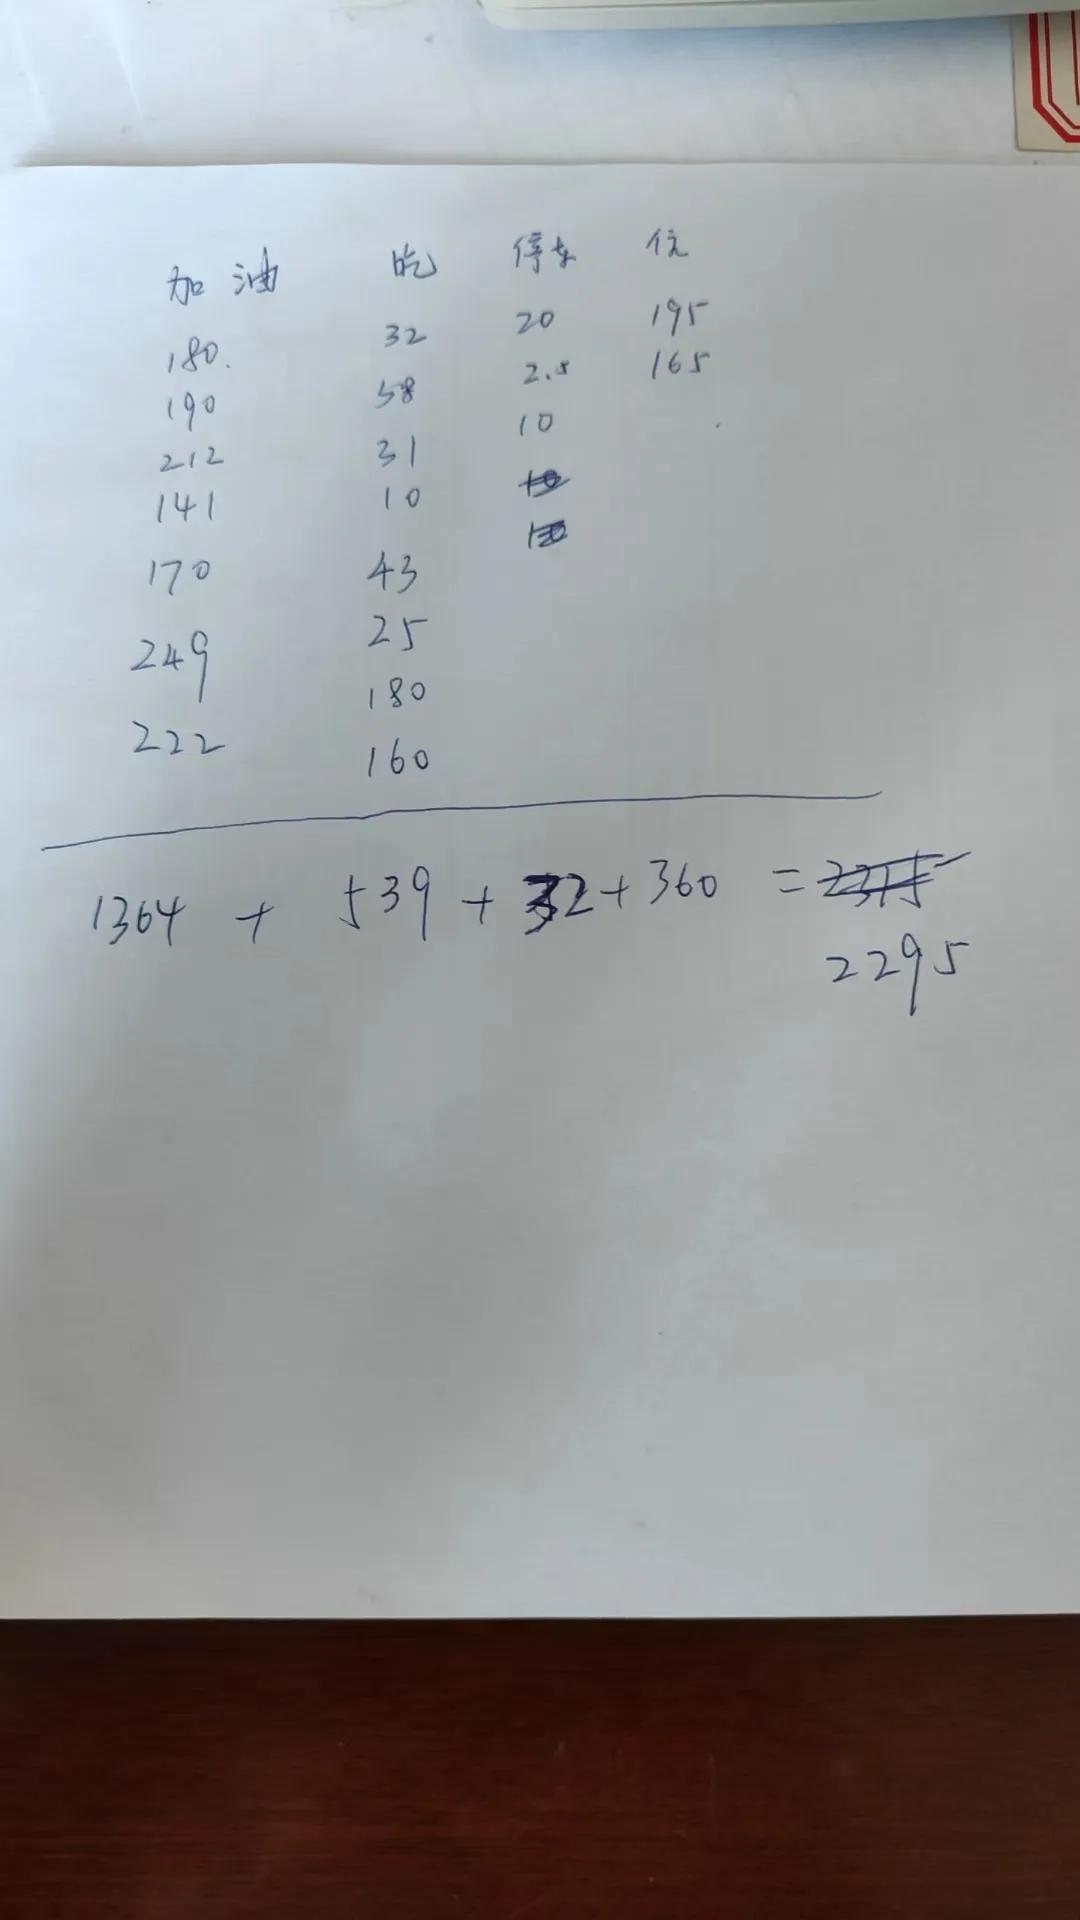 加油 吃 停车 住
180. 32 20 195
190 58 2.5 165
212 31 10
141 10
170 43
249 25
222 180
160
1364 + 539 + 32 + 360 = 2315
2295